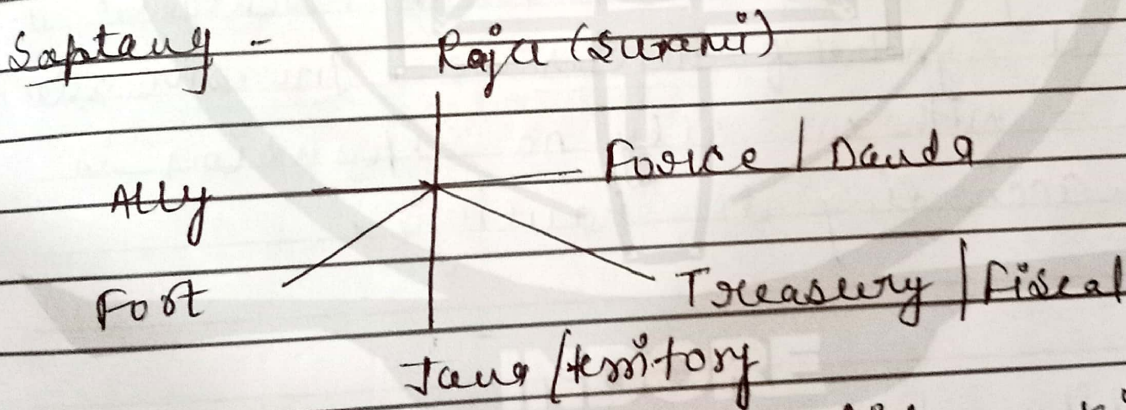 Saptang - Raja (Swami)
Force / Danda
Ally
Fort
Treasury / Fiscal
Jana / territory